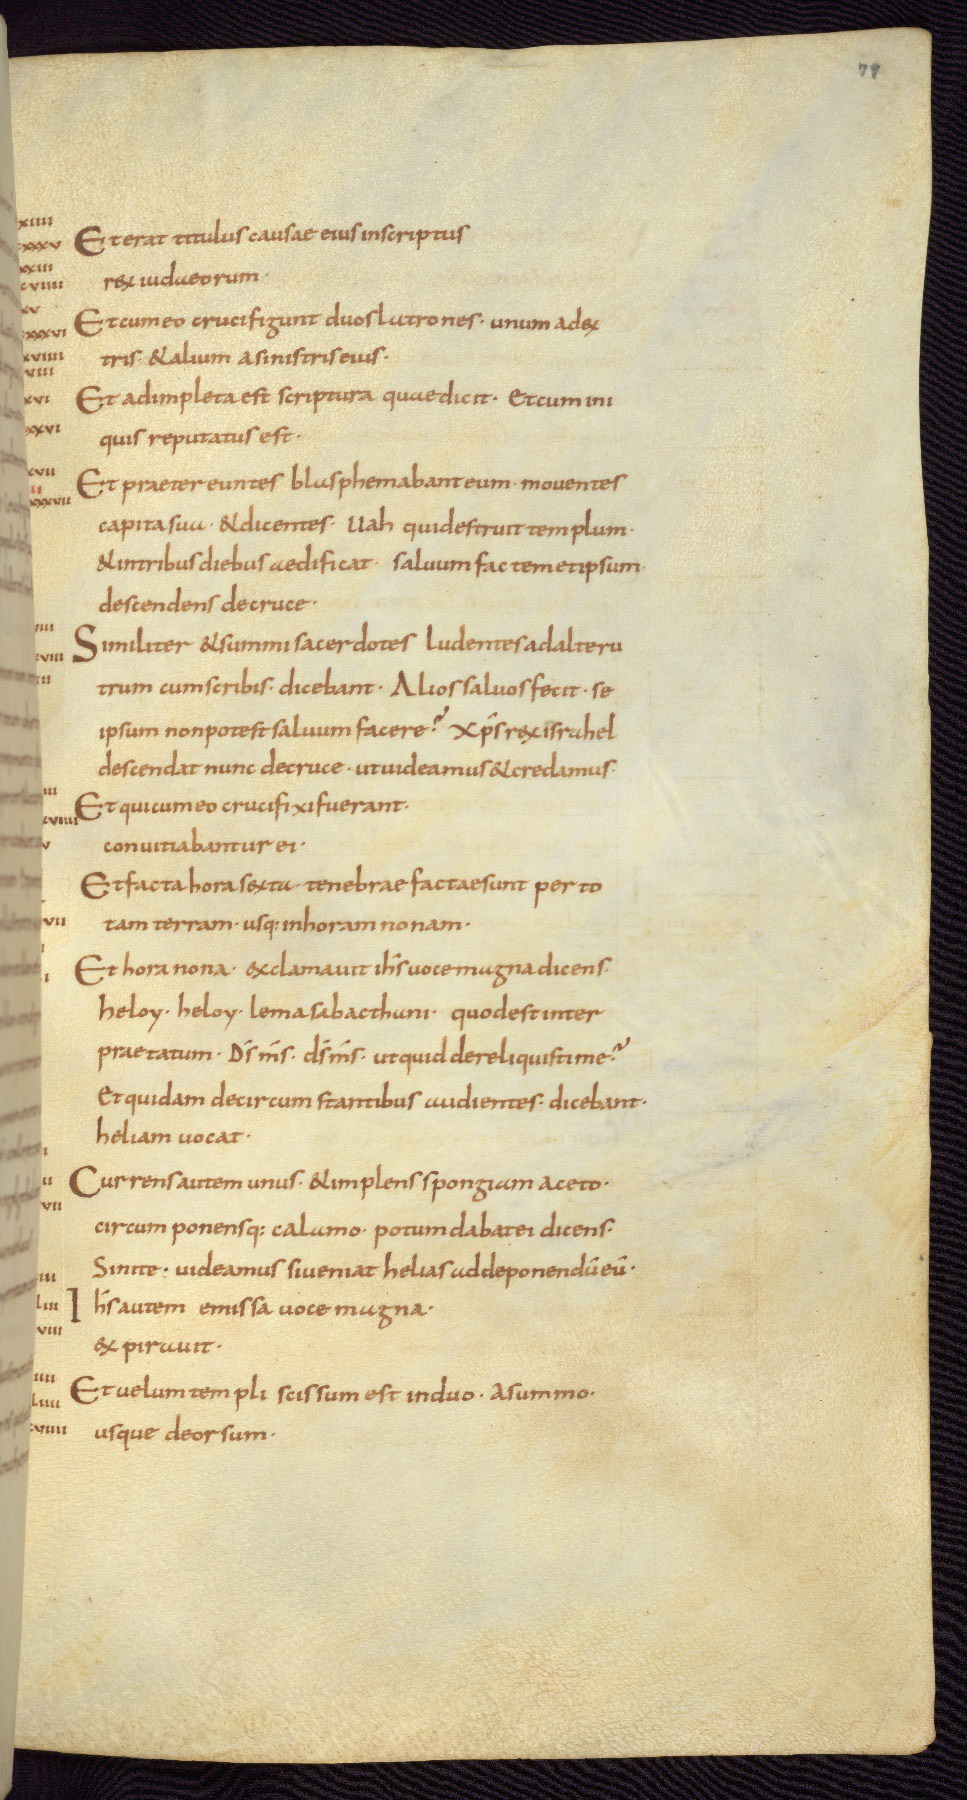 78
Et erat titulus causae eius inscriptus
rex iudaeorum·
Et cum eo crucifigunt duos latrones· unum adex
tris· & alium a sinistris eius·
Et adimpleta est scriptura quae dicit· Et cum ini
quis reputatus est·
Et praetereuntes blasphemabant eum· mouentes
capita sua· & dicentes· Uah qui destruit templum·
& in tribus diebus aedificat· saluum fac temetipsum·
descendens de cruce·
Similiter & summi sacerdotes ludentes ad alteru
trum cum scribis· dicebant· Alios saluos fecit· se
ipsum non potest saluum facere? Xp̄s rex israhel
descendat nunc de cruce· ut uideamus & credamus·
Et qui cum eo crucifixi fuerant·
conuitiabantur ei·
Et facta hora sexta· tenebrae factae sunt per to
tam terram· usq: in horam nonam·
Et hora nona· exclamauit ih̄s uoce magna dicens·
heloy· heloy· lema sabacthani· quod est inter
praetatum· D̄s m̄s· d̄s m̄s· ut quid dereliquisti me?
Et quidam de circumstantibus audientes· dicebant·
heliam uocat·
Currens autem unus· & implens spongiam aceto·
circumponensq: calamo· potum dabat ei dicens·
Sinite· uideamus si ueniat helias ad deponendū eū·
Ih̄s autem emissa uoce magna·
expirauit·
Et uelum templi scissum est in duo· A summo·
usque deorsum·